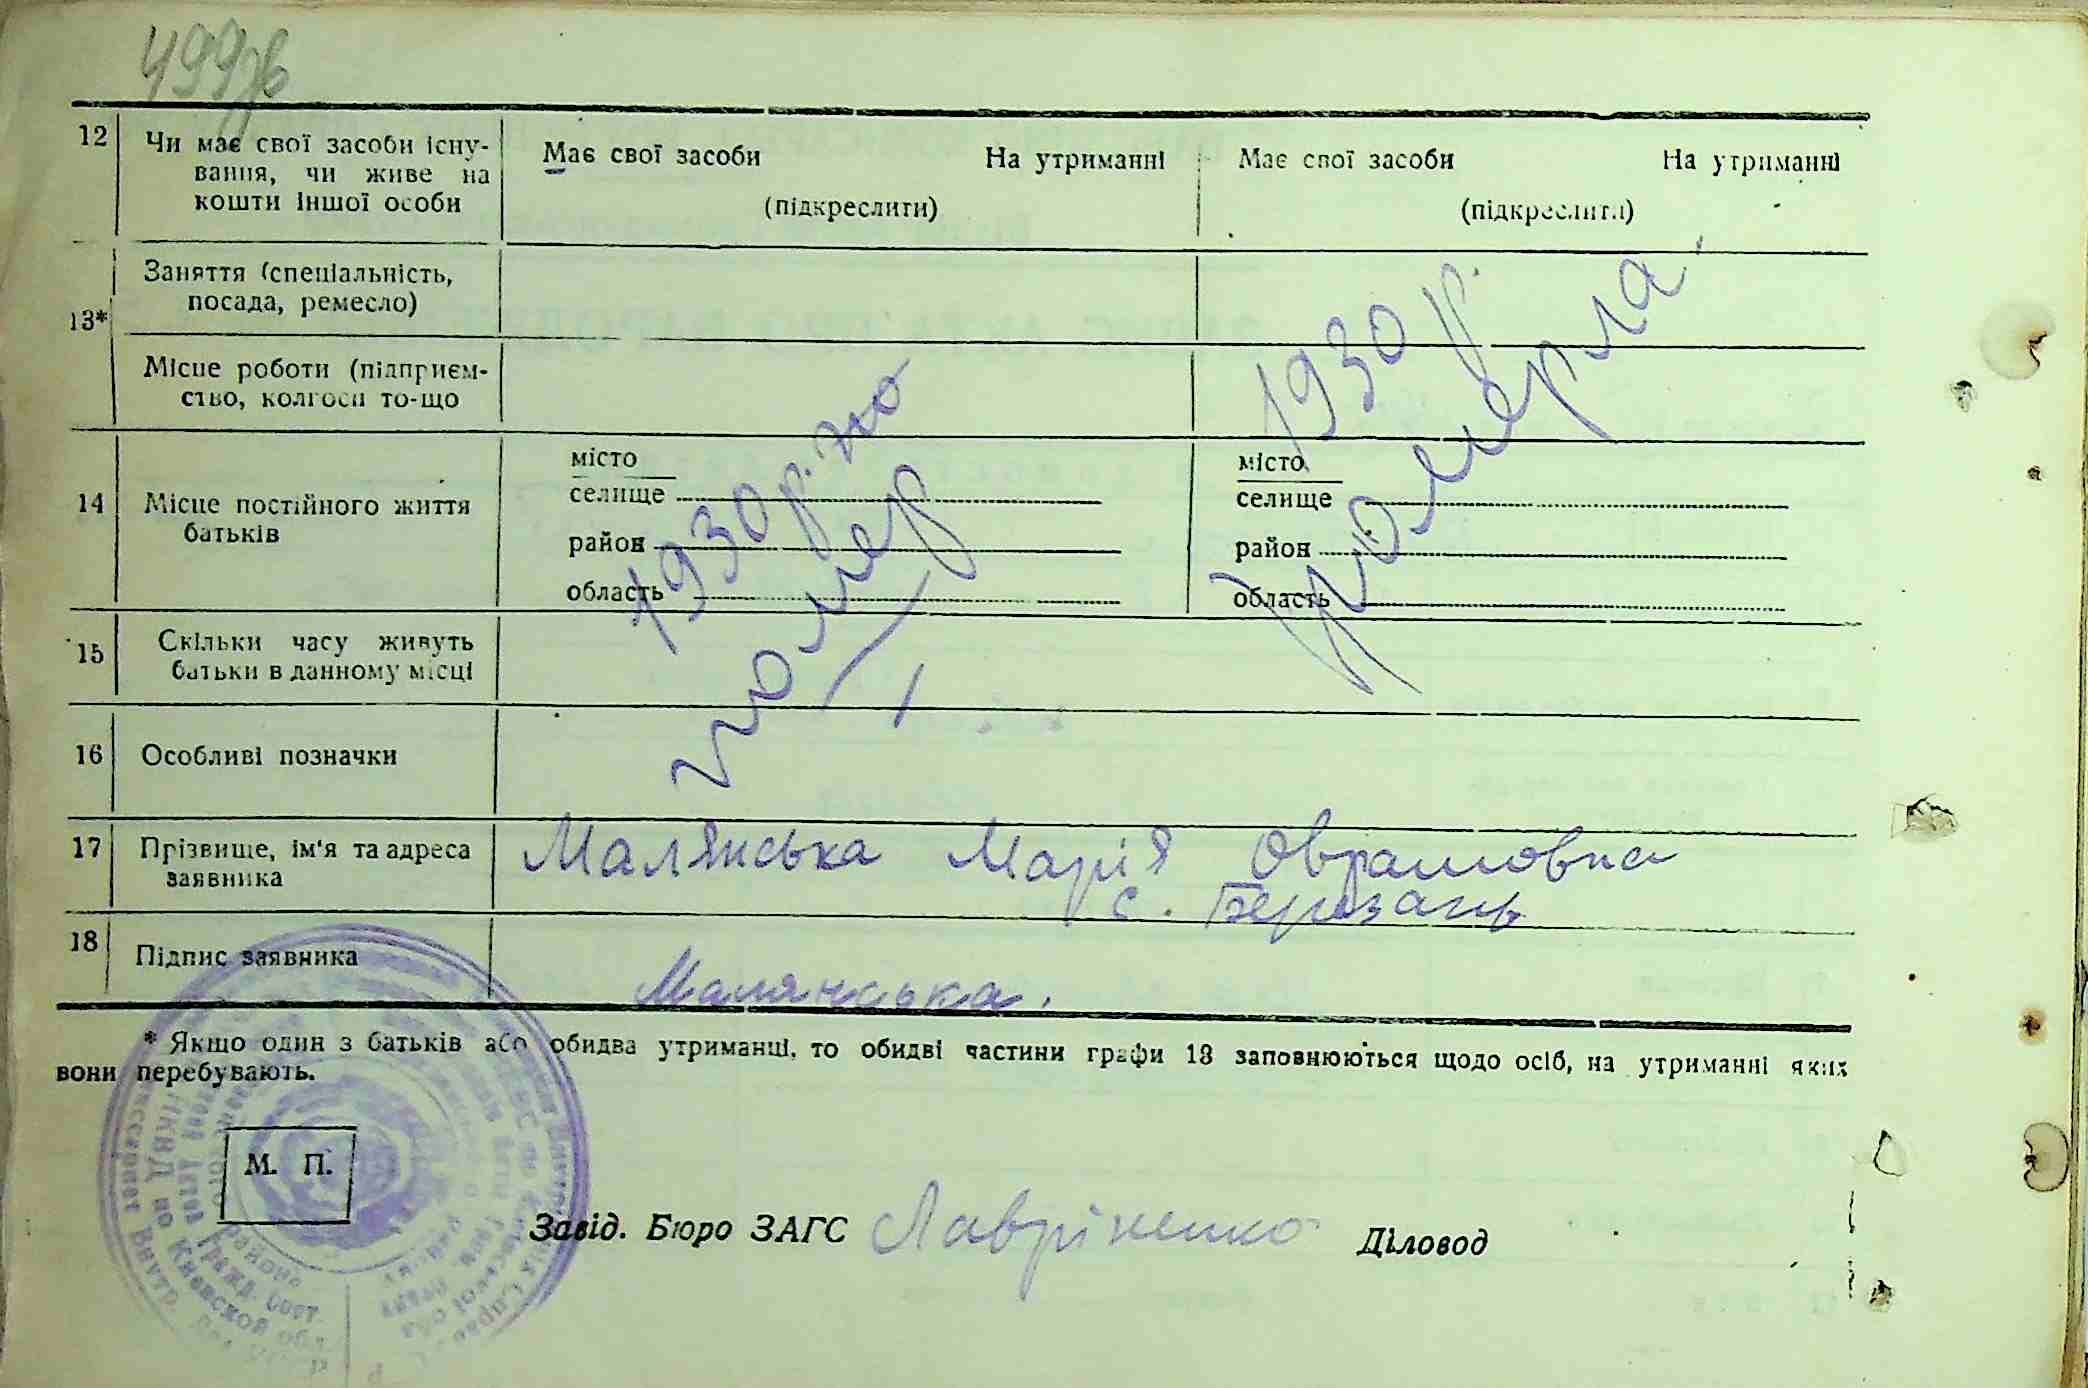 499зв
12 Чи має свої засоби існу-
вання, чи живе на
кошти іншої особи
Має свої засоби На утриманні
(підкреслити)
Має свої засоби На утриманні
(підкреслити)
13* Заняття (спеціальність,
посада, ремесло)
Місце роботи (підприєм-
ство, колгосп то-що
1930 р.
помер
1930 р.
померла
14 Місце постійного життя
батьків
місто
селище
район
область
місто
селище
район
область
15 Скільки часу живуть
батьки в данному місці
16 Особливі позначки
17 Прізвище, ім'я та адреса
заявника
Малянська Марія Оврамовна
с. Березань
18 Підпис заявника
Малянська.
* Якщо один з батьків або обидва утриманці, то обидві частини графи 13 заповнюються щодо осіб, на утриманні яких
вони перебувають.
М. П.
Завід. Бюро ЗАГС Лавріненко Діловод